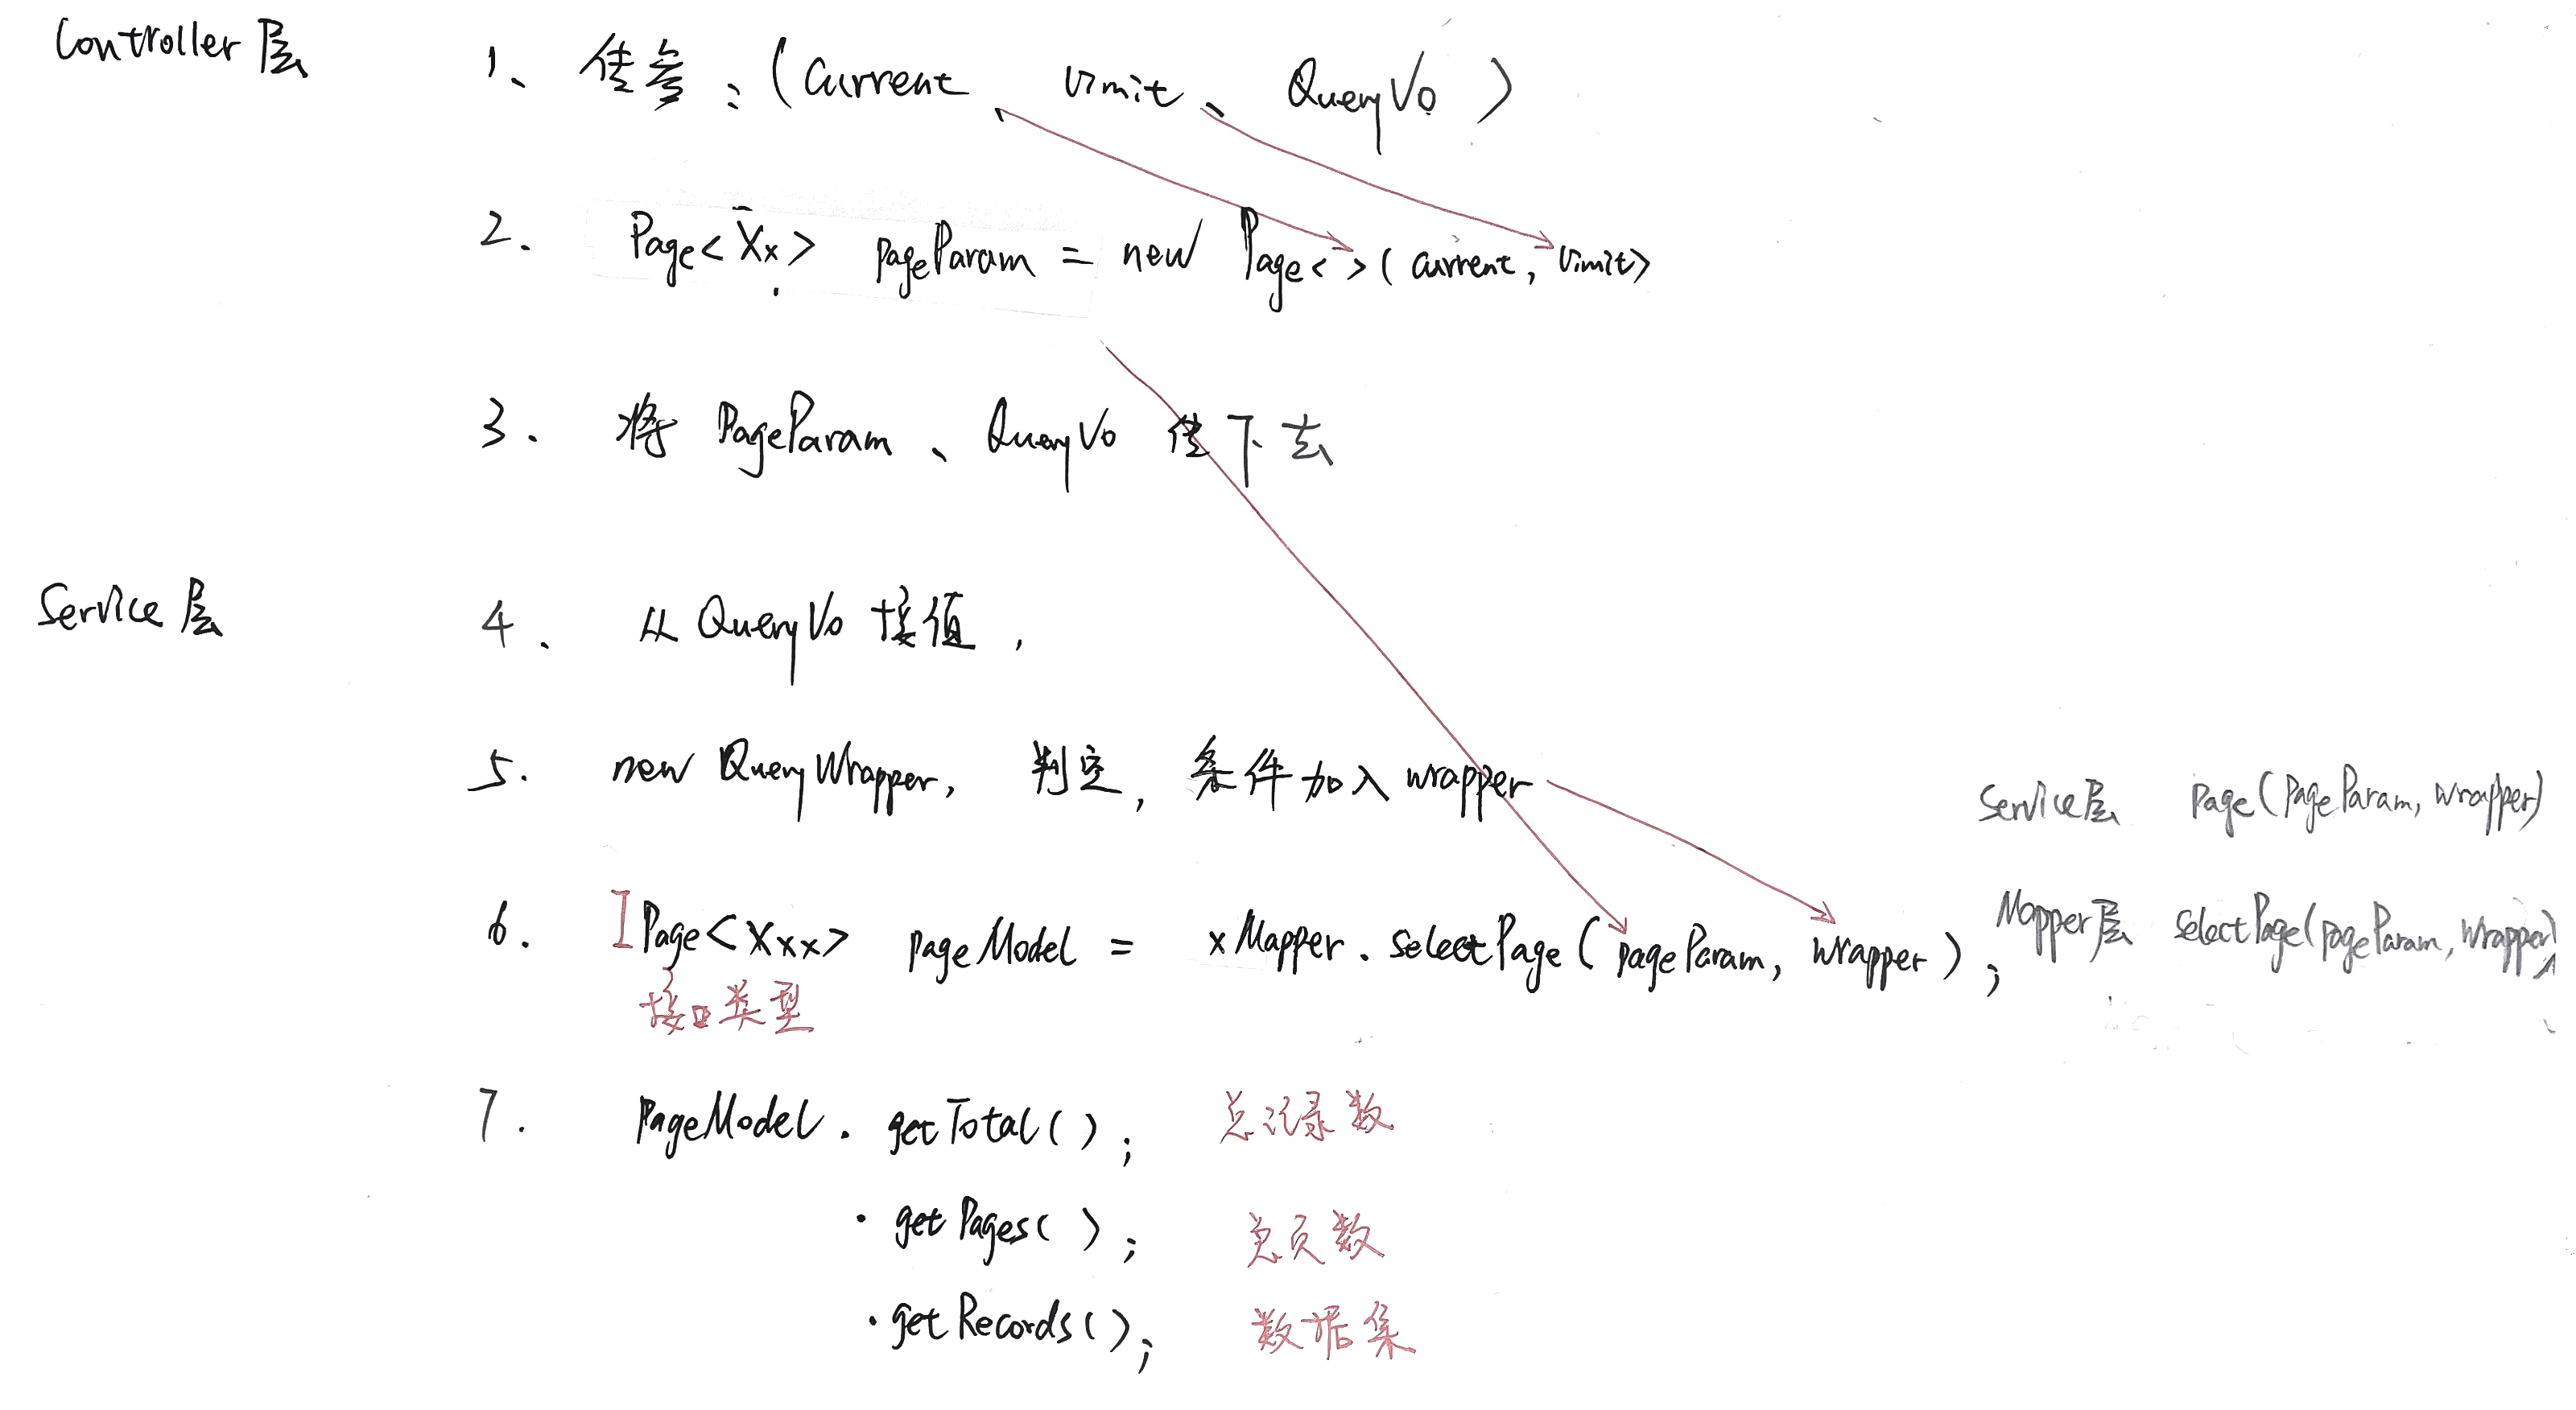 Controller层
1、 传参：(Current、 limit、 QueryVo )
2. Page<Xx> pageParam = new Page<>(current, limit>
3. 将 PageParam 、 QueryVo 传下去
Service层
4. 从 QueryVo 接值,
5. new QueryWrapper, 判定, 条件加入 wrapper
Service层 Page(PageParam, wrapper)
6. IPage<Xxx> pageModel = xMapper.selectPage( pageParam, wrapper);
接口类型
Mapper层 SelectPage(pageParam, wrapper)
7. PageModel. getTotal( ); 总记录数
. getPages( ); 总页数
. getRecords( ); 数据集